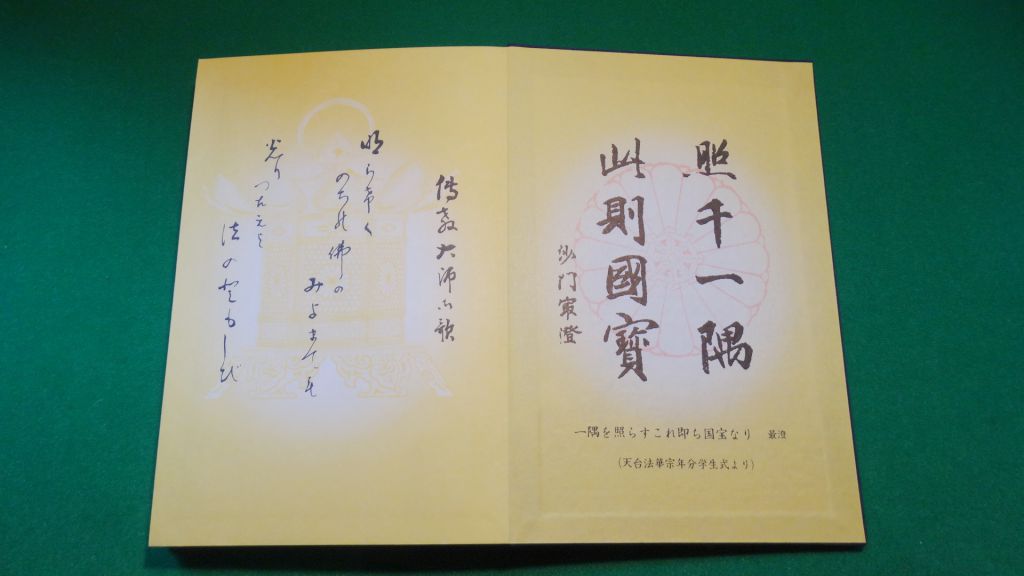 照千一隅
此則國寶
沙門最澄
一隅を照らすこれ即ち国宝なり 最澄
(天台法華宗年分学生式より)
傳教大師御歌
明らけく
のちの佛の
みよまでも
光りつたえよ
法のともしび